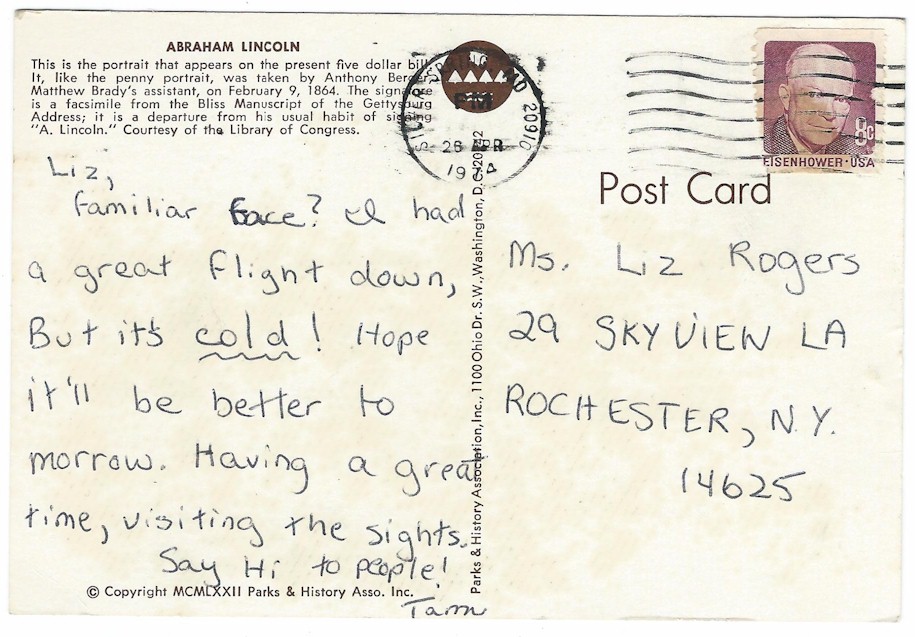 ABRAHAM LINCOLN
This is the portrait that appears on the present five dollar bill.
It, like the penny portrait, was taken by Anthony Berger,
Matthew Brady's assistant, on February 9, 1864. The signature
is a facsimile from the Bliss Manuscript of the Gettysburg
Address; it is a departure from his usual habit of signing
"A. Lincoln." Courtesy of the Library of Congress.
SILVER SPRING MD 20910
PM
26 APR
1974
EISENHOWER·USA
8c
Post Card
Liz,
Familiar face? I had
a great flight down,
But it's cold! Hope
it'll be better to
morrow. Having a great
time, visiting the sights.
Say Hi to people!
Tam
Ms. Liz Rogers
29 SKYVIEW LA
ROCHESTER, N.Y.
14625
Parks & History Association, Inc., 1100 Ohio Dr. S.W., Washington, D.C. 20242
© Copyright MCMLXXII Parks & History Asso. Inc.